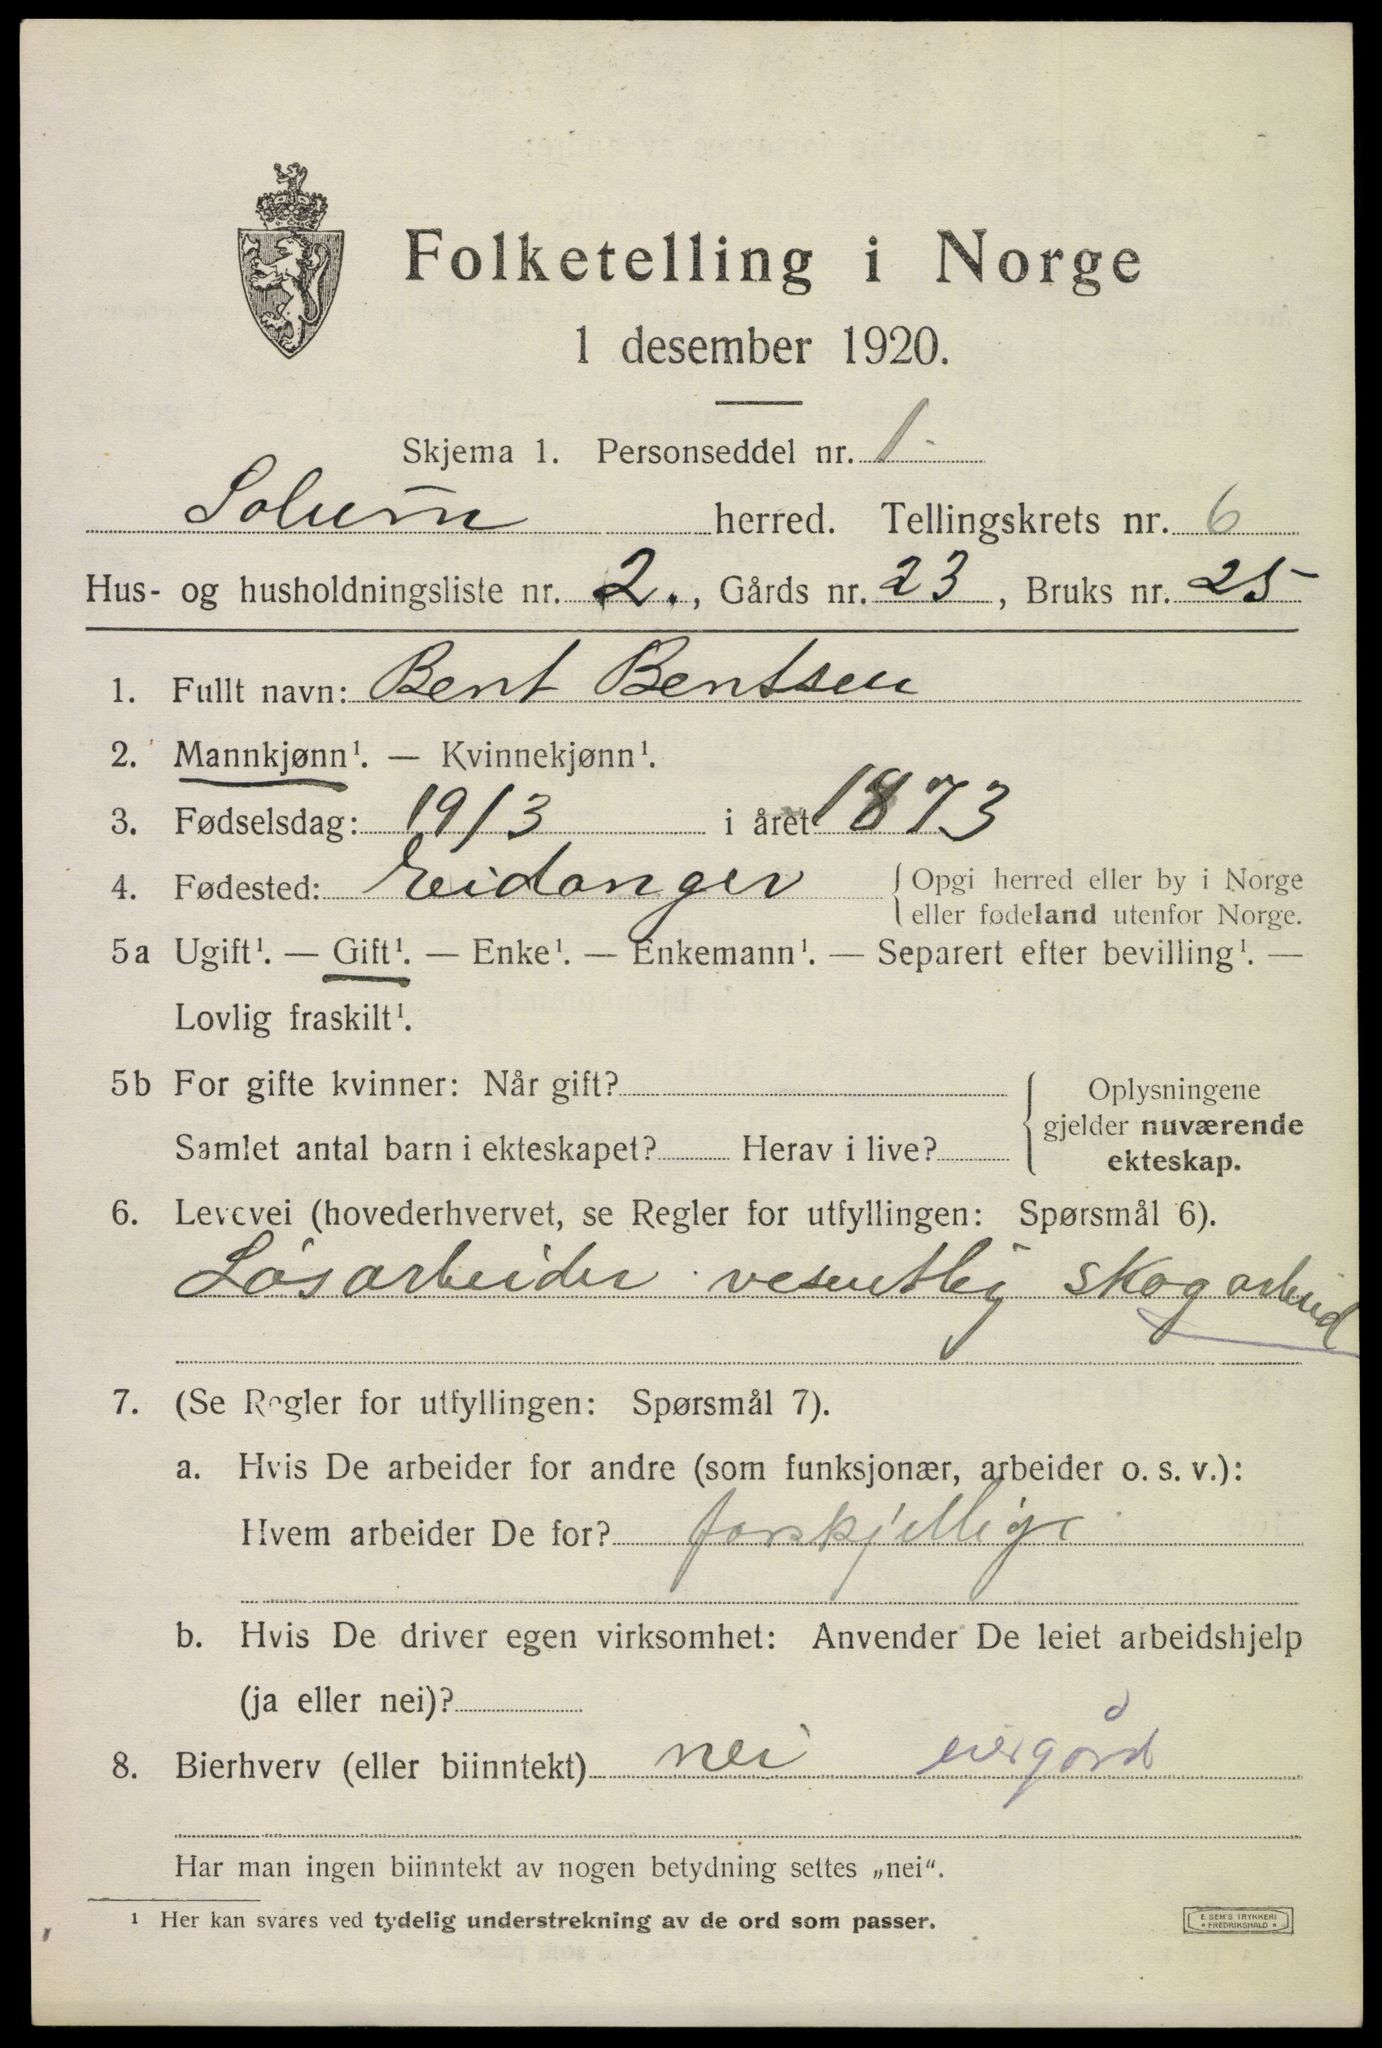 Folketelling i Norge
1 desember 1920.
Skjema 1. Personseddel nr. 1.
Solum herred. Tellingskrets nr. 6
Hus- og husholdningsliste nr. 2., Gårds nr. 23, Bruks nr. 25
1. Fullt navn: Bent Bentsen
2. Mannkjønn¹. — Kvinnekjønn¹.
3. Fødselsdag: 19/3 i året 1873
4. Fødested: Eidanger { Opgi herred eller by i Norge
eller fødeland utenfor Norge.
5a Ugift¹. — Gift¹. — Enke¹. — Enkemann¹. — Separert efter bevilling¹. —
Lovlig fraskilt¹.
5b For gifte kvinner: Når gift?
Samlet antal barn i ekteskapet? Herav i live?
{ Oplysningene
gjelder nuværende
ekteskap.
6. Levevei (hovederhvervet, se Regler for utfyllingen: Spørsmål 6).
Løsarbeider vesentlig skogarbeid
7. (Se Regler for utfyllingen: Spørsmål 7).
a. Hvis De arbeider for andre (som funksjonær, arbeider o. s. v.):
Hvem arbeider De for? forskjellige
b. Hvis De driver egen virksomhet: Anvender De leiet arbeidshjelp
(ja eller nei)?
8. Bierhverv (eller biinntekt) nei
Har man ingen biinntekt av nogen betydning settes „nei“.
¹ Her kan svares ved tydelig understrekning av de ord som passer.
E. SEM'S TRYKKERI
* FREDRIKSHALD *